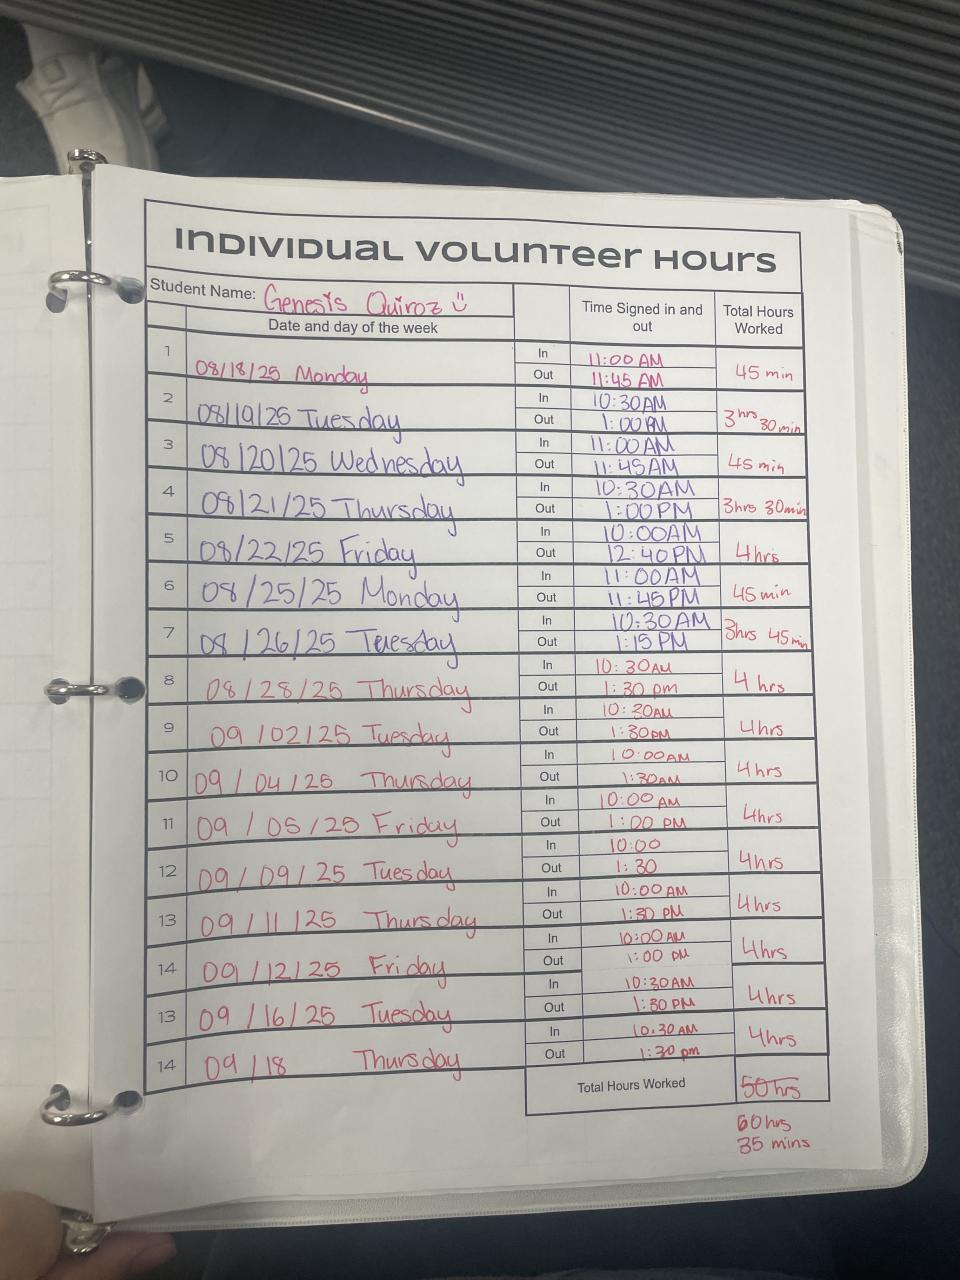 INDIVIDUAL VOLUNTEER HOURS
Student Name: Genesis Quiroz
Date and day of the week
Time Signed in and out
Total Hours Worked
1 08/18/25 Monday In 11:00 AM Out 11:45 AM 45 min
2 08/19/25 Tuesday In 10:30AM Out 1:00 PM 3 hrs 30 min
3 08/20/25 Wednesday In 11:00 AM Out 11:45AM 45 min
4 08/21/25 Thursday In 10:30AM Out 1:00PM 3hrs 30min
5 08/22/25 Friday In 10:00AM Out 12:40PM 4hrs
6 08/25/25 Monday In 11:00AM Out 11:45PM 45 min
7 08/26/25 Tuesday In 10:30AM Out 1:15PM 3hrs 45min
8 08/28/25 Thursday In 10:30AM Out 1:30 pm 4 hrs
9 09/02/25 Tuesday In 10:30AM Out 1:30PM 4hrs
10 09/04/25 Thursday In 10:00AM Out 1:30AM 4hrs
11 09/05/25 Friday In 10:00 AM Out 1:00 PM 4hrs
12 09/09/25 Tuesday In 10:00 Out 1:30 4hrs
13 09/11/25 Thursday In 10:00 AM Out 1:30 PM 4hrs
14 09/12/25 Friday In 10:00 AM Out 1:00 PM 4hrs
13 09/16/25 Tuesday In 10:30AM Out 1:30 PM 4hrs
14 09/18 Thursday In 10:30 AM Out 1:30 pm 4hrs
Total Hours Worked 50 hrs
60hrs
35 mins